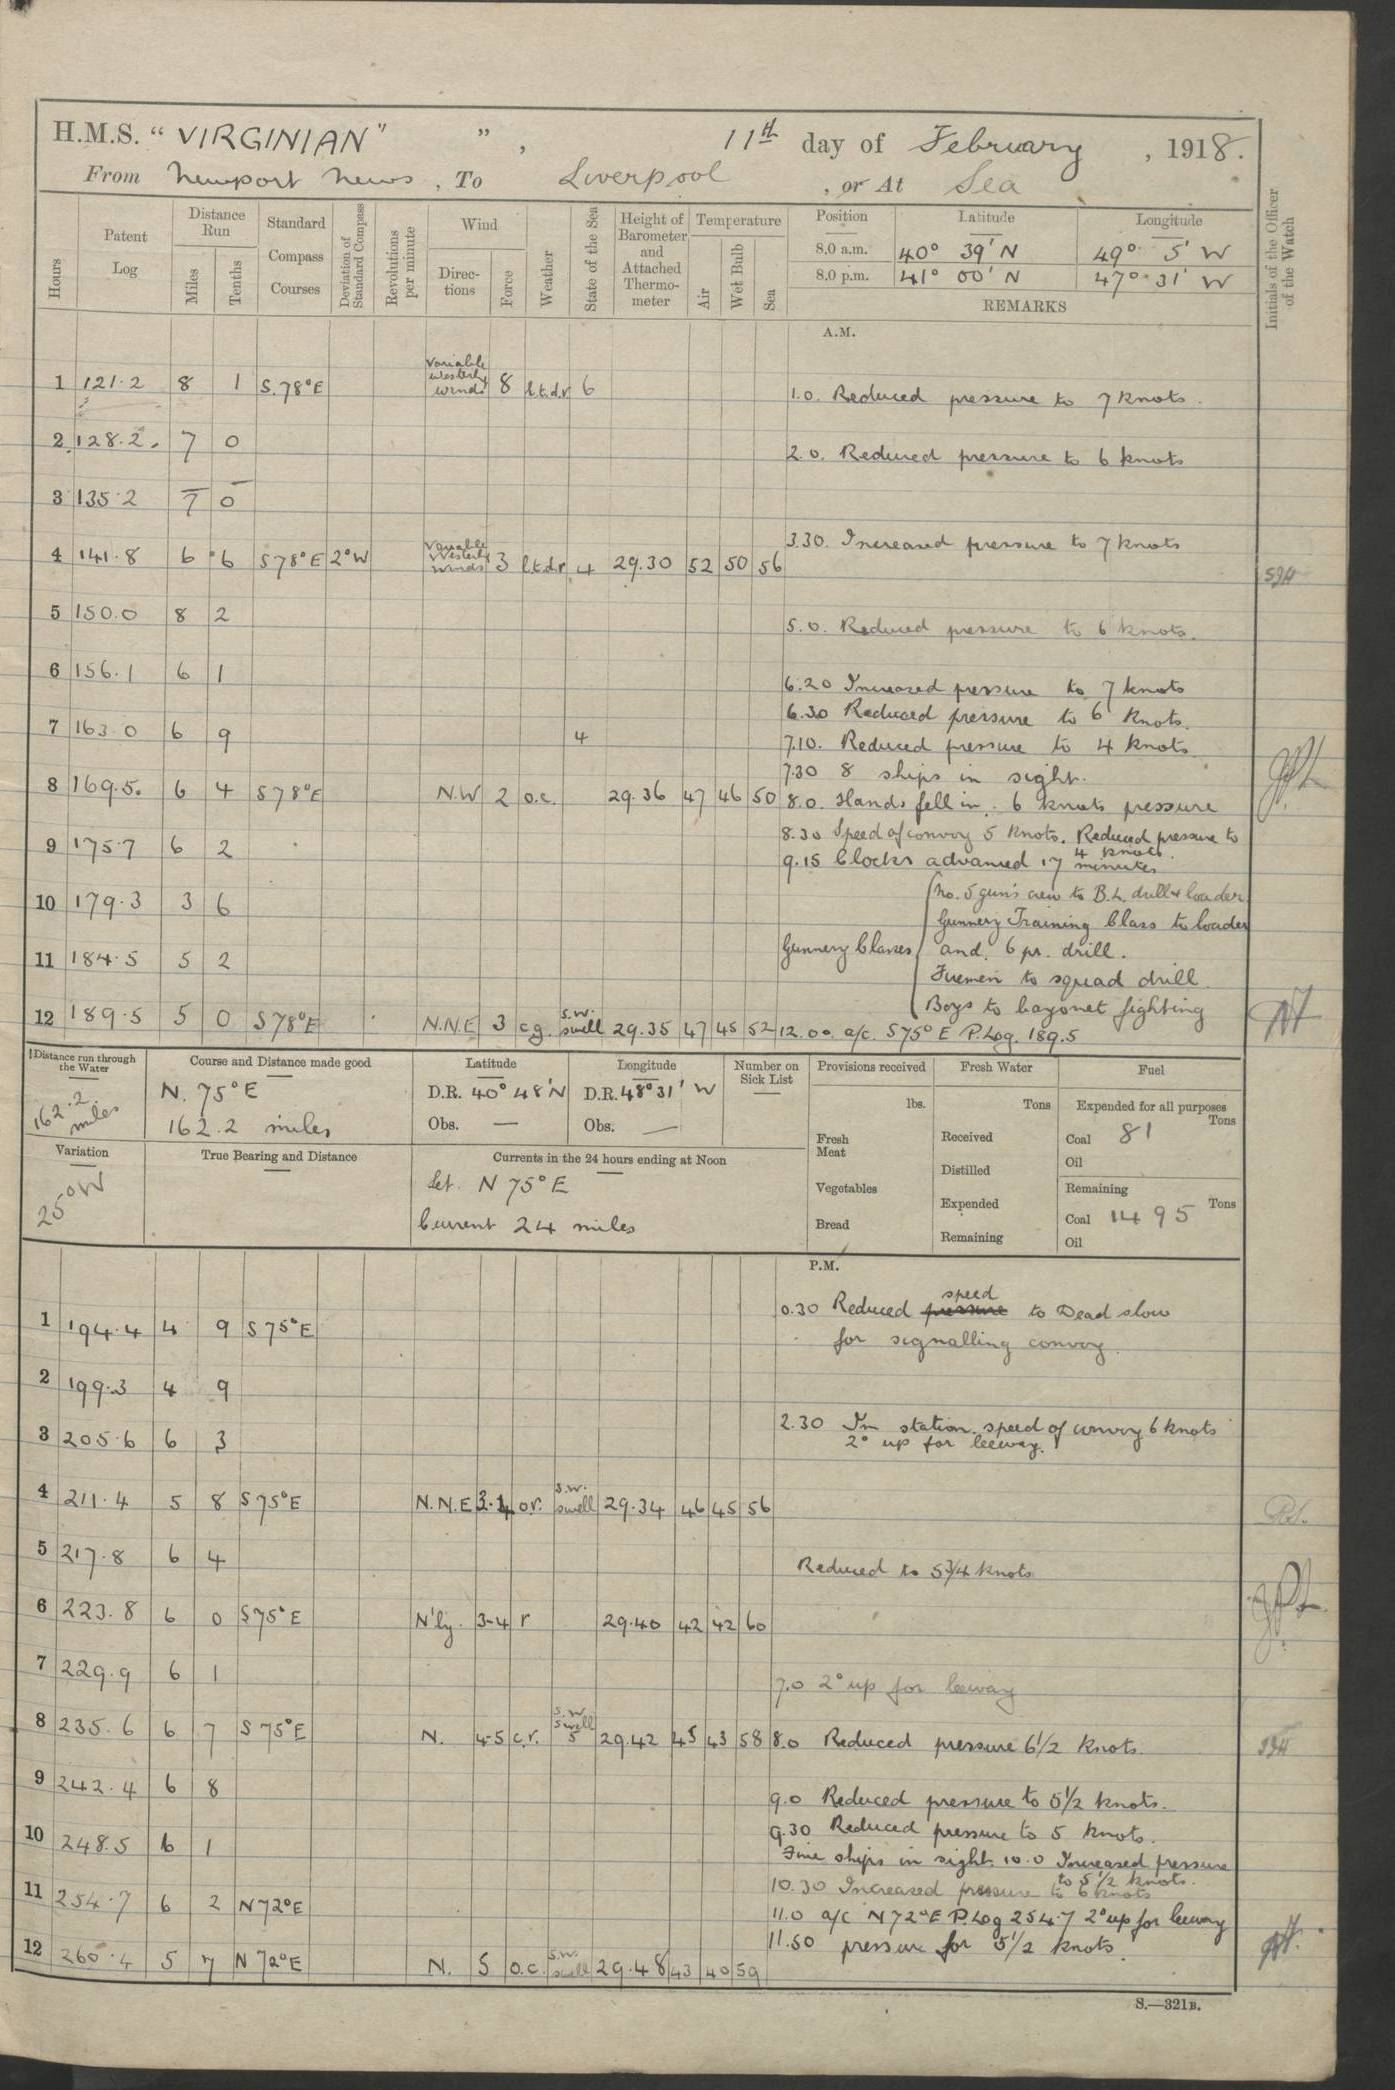 H.M.S. “ VIRGINIAN” ” , 11th day of February , 1918.
From Newport News , To Liverpool , or At Sea
Hours
Patent Log
Distance Run
Miles
Tenths
Standard Compass Courses
Deviation of Standard Compass
Revolutions per minute
Wind
Direc-tions
Force
Weather
State of the Sea
Height of Barometer and Attached Thermo-meter
Temperature
Air
Wet Bulb
Sea
Position Latitude Longitude
8.0 a.m. 40° 39' N 49° 5' W
8.0 p.m. 41° 00' N 47° 31' W
REMARKS
Initials of the Officer of the Watch
A.M.
1 121.2 8 1 S.78°E Variable westerly winds 8 l.t.d.r 6 1.0. Reduced pressure to 7 knots.
2 128.2. 7 0 2.0. Reduced pressure to 6 knots
3 135.2 7 0
3.30. Increased pressure to 7 knots
4 141.8 6 6 S78°E 2°W Variable Westerly winds 3 l.t.d.r 4 29.30 52 50 56
5 150.0 8 2 5.0. Reduced pressure to 6 knots.
6 156.1 6 1 6.20 Increased pressure to 7 knots
6.30 Reduced pressure to 6 knots.
7 163.0 6 9 4 7.10. Reduced pressure to 4 knots
7.30 8 ships in sight.
8 169.5. 6 4 S78°E N.W 2 o.c. 29.36 47 46 50 8.0. Hands fell in. 6 knots pressure
8.30 Speed of convoy 5 knots. Reduced pressure to 4 knots.
9 175.7 6 2 9.15 Clocks advanced 17 minutes
10 179.3 3 6 No. 5 gun's crew to B.L. drill & loader
Gunnery Training Class to loader
11 184.5 5 2 Gunnery Classes and. 6 pr. drill.
Firemen to squad drill
Boys to bayonet fighting
12 189.5 5 0 S78°E N.N.E 3 c.g. S.W. swell 29.35 47 45 52 12.00. a/c. S75°E P.Log. 189.5
Distance run through the Water
162.2 miles
Course and Distance made good
N. 75°E
162.2 miles
Latitude
D.R. 40° 48'N
Obs. —
Longitude
D.R. 48° 31' W
Obs. —
Number on Sick List
—
Provisions received
lbs.
Fresh Meat
Vegetables
Bread
Fresh Water
Tons
Received
Distilled
Expended
Remaining
Fuel
Expended for all purposes
Tons
Coal 81
Oil
Remaining
Tons
Coal 1495
Oil
Variation
25°W
True Bearing and Distance
Currents in the 24 hours ending at Noon
Set. N 75°E
Current 24 miles
P.M.
0.30 Reduced pressure speed to Dead slow
1 194.4 4 9 S75°E for signalling convoy.
2 199.3 4 9
2.30 In station. speed of convoy 6 knots
3 205.6 6 3 2° up for leeway.
4 211.4 5 8 S75°E N.N.E 3-4 o.r. S.W. swell 29.34 46 45 56
5 217.8 6 4 Reduced to 5 3/4 knots
6 223.8 6 0 S75°E N'ly. 3-4 r 29.40 42 42 60
7 229.9 6 1 7.0 2° up for leeway
8 235.6 6 7 S75°E N. 4-5 c.r. S.W. swell 5 29.42 45 43 58 8.0 Reduced pressure 6 1/2 knots.
9 242.4 6 8 9.0 Reduced pressure to 5 1/2 knots.
9.30 Reduced pressure to 5 knots.
10 248.5 6 1 Five ships in sight. 10.0 Increased pressure to 5 1/2 knots.
10.30 Increased pressure to 6 knots
11 254.7 6 2 N72°E 11.0 a/c N72°E P.Log 254.7 2° up for leeway
11.50 pressure for 5 1/2 knots.
12 260.4 5 7 N72°E N. 5 o.c. S.W. swell 29.48 43 40 59
S.—321B.